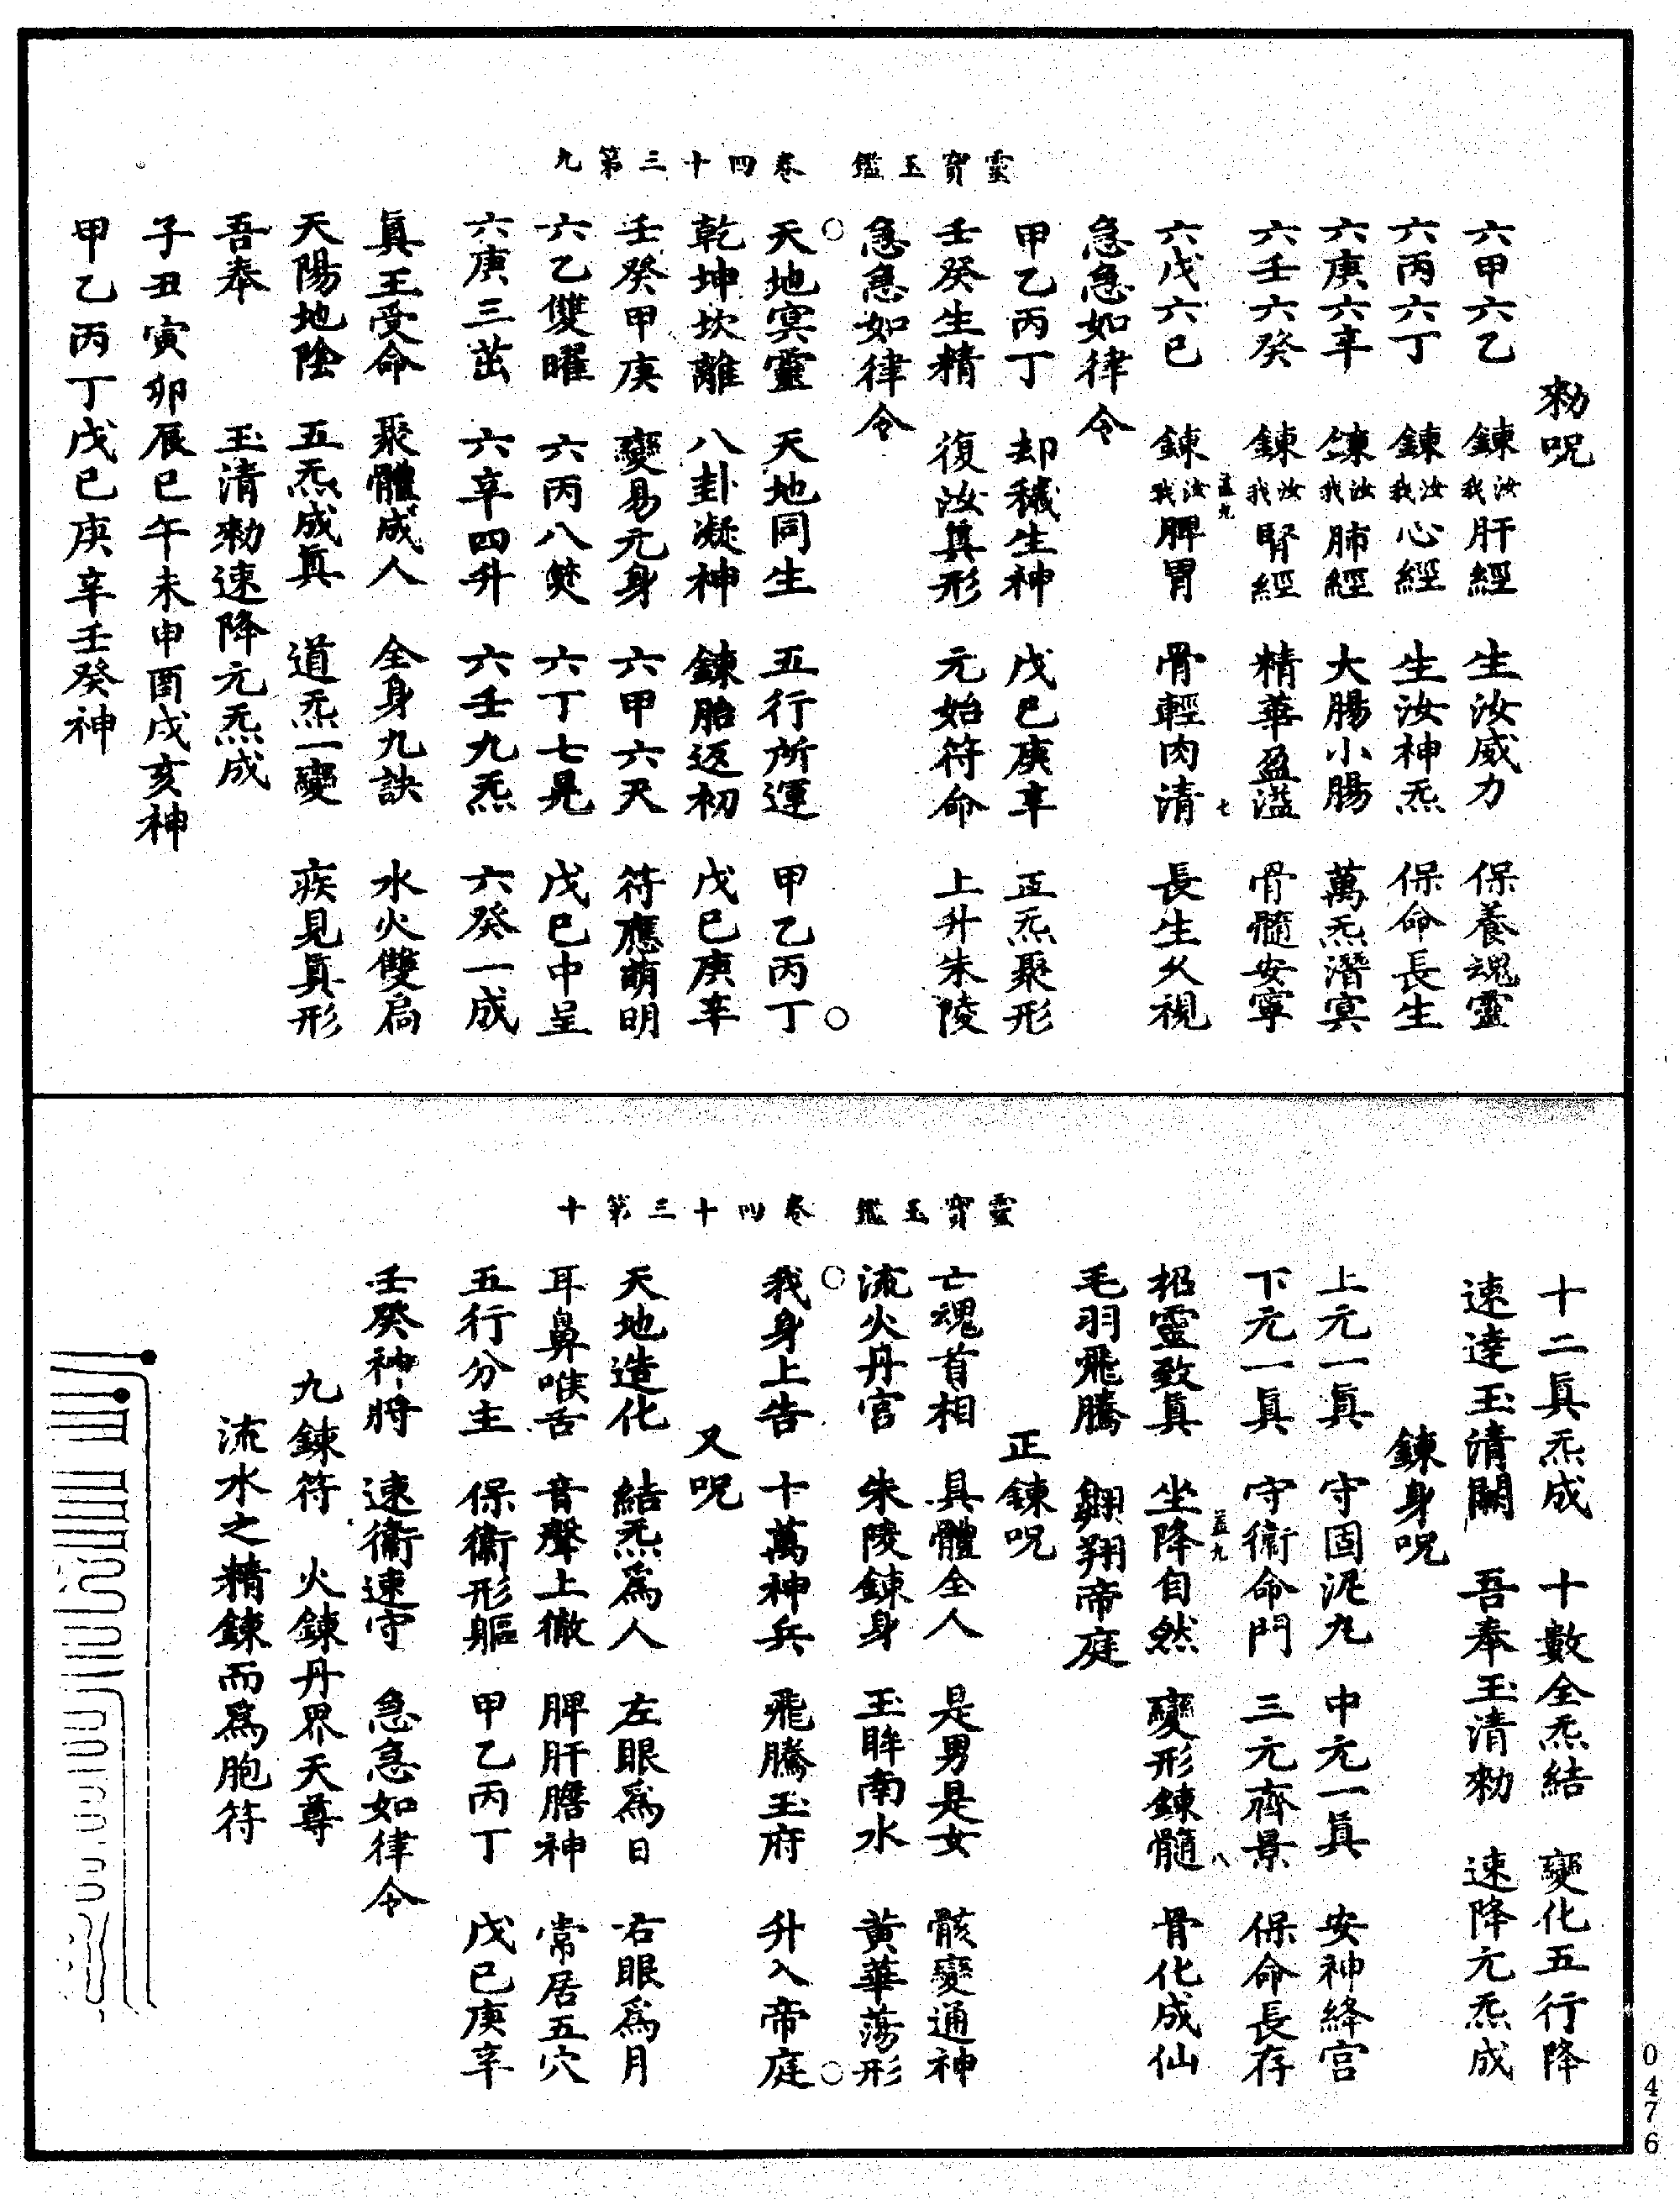 靈寶玉鑑　卷四十三第九
敕呪
六甲六乙　鍊汝我肝經　生汝威力　保養魂靈
六丙六丁　鍊汝我心經　生汝神炁　保命長生
六庚六辛　鍊汝我肺經　大腸小腸　萬炁潛冥
六壬六癸　鍊汝我腎經　精華盈溢　骨髓安寧
孟九　七
六戊六己　鍊汝我脾胃　骨輕肉清　長生久視
急急如律令
甲乙丙丁　却穢生神　戊己庚辛　正炁聚形
壬癸生精　復汝真形　元始符命　上升朱陵
急急如律令
天地冥靈　天地同生　五行所運　甲乙丙丁
乾坤坎離　八卦凝神　鍊胎返初　戊己庚辛
壬癸甲庚　變易元身　六甲六天　符應萌明
六乙雙曜　六丙八煐　六丁七晃　戊己中呈
六庚三茁　六辛四升　六壬九炁　六癸一成
真王受命　聚體成人　全身九訣　水火雙扃
天陽地陰　五炁成真　道炁一變　疾見真形
吾奉　玉清敕速降元炁成
子丑寅卯辰巳午未申酉戌亥神
甲乙丙丁戊己庚辛壬癸神
靈寶玉鑑　卷四十三第十
十二真炁成　十數全炁結　變化五行降
速達玉清闕　吾奉玉清敕　速降元炁成
鍊身呪
上元一真　守固泥丸　中元一真　安神絳宮
下元一真　守衛命門　三元齊景　保命長存
孟九　八
招靈致真　坐降自然　變形鍊髓　骨化成仙
毛羽飛騰　翱翔帝庭
正鍊呪
亡魂首相　具體全人　是男是女　骸變通神
流火丹宮　朱陵鍊身　玉眸南水　黃華蕩形
我身上告　十萬神兵　飛騰玉府　升入帝庭
又呪
天地造化　結炁為人　左眼為日　右眼為月
耳鼻喉舌　音聲上徹　脾肝膽神　常居五穴
五行分主　保衛形軀　甲乙丙丁　戊己庚辛
壬癸神將　速衛速守　急急如律令
九鍊符　火鍊丹界天尊
流水之精鍊而為胞符
0476